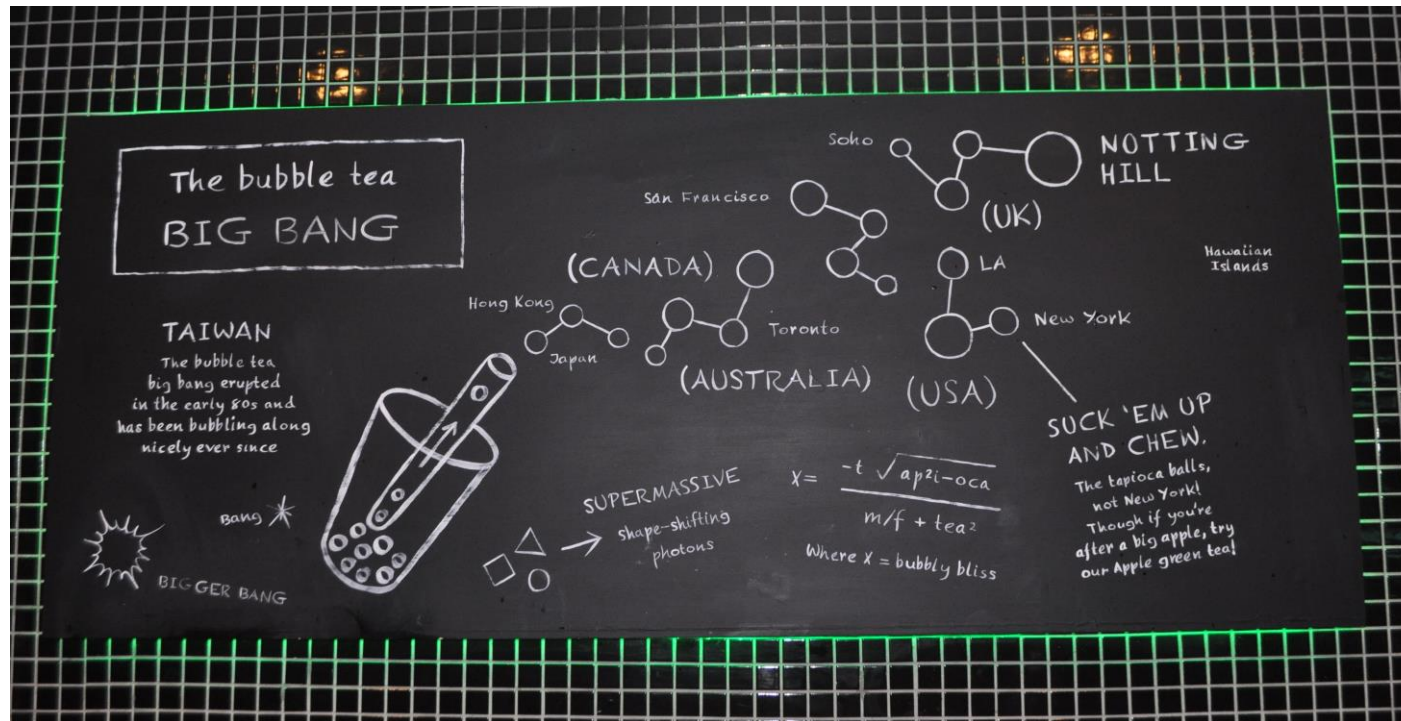 The bubble tea
BIG BANG
TAIWAN
The bubble tea
big bang erupted
in the early 80s and
has been bubbling along
nicely ever since
Bang
BIGGER BANG
Hong Kong
Japan
(CANADA)
Toronto
(AUSTRALIA)
San Francisco
Soho
NOTTING
HILL
(UK)
LA
New York
(USA)
Hawaiian
Islands
SUPERMASSIVE
shape-shifting
photons
X= -t √ap²i-oca
m/f + tea²
Where X = bubbly bliss
SUCK 'EM UP
AND CHEW.
The tapioca balls,
not New York!
Though if you're
after a big apple, try
our Apple green tea!